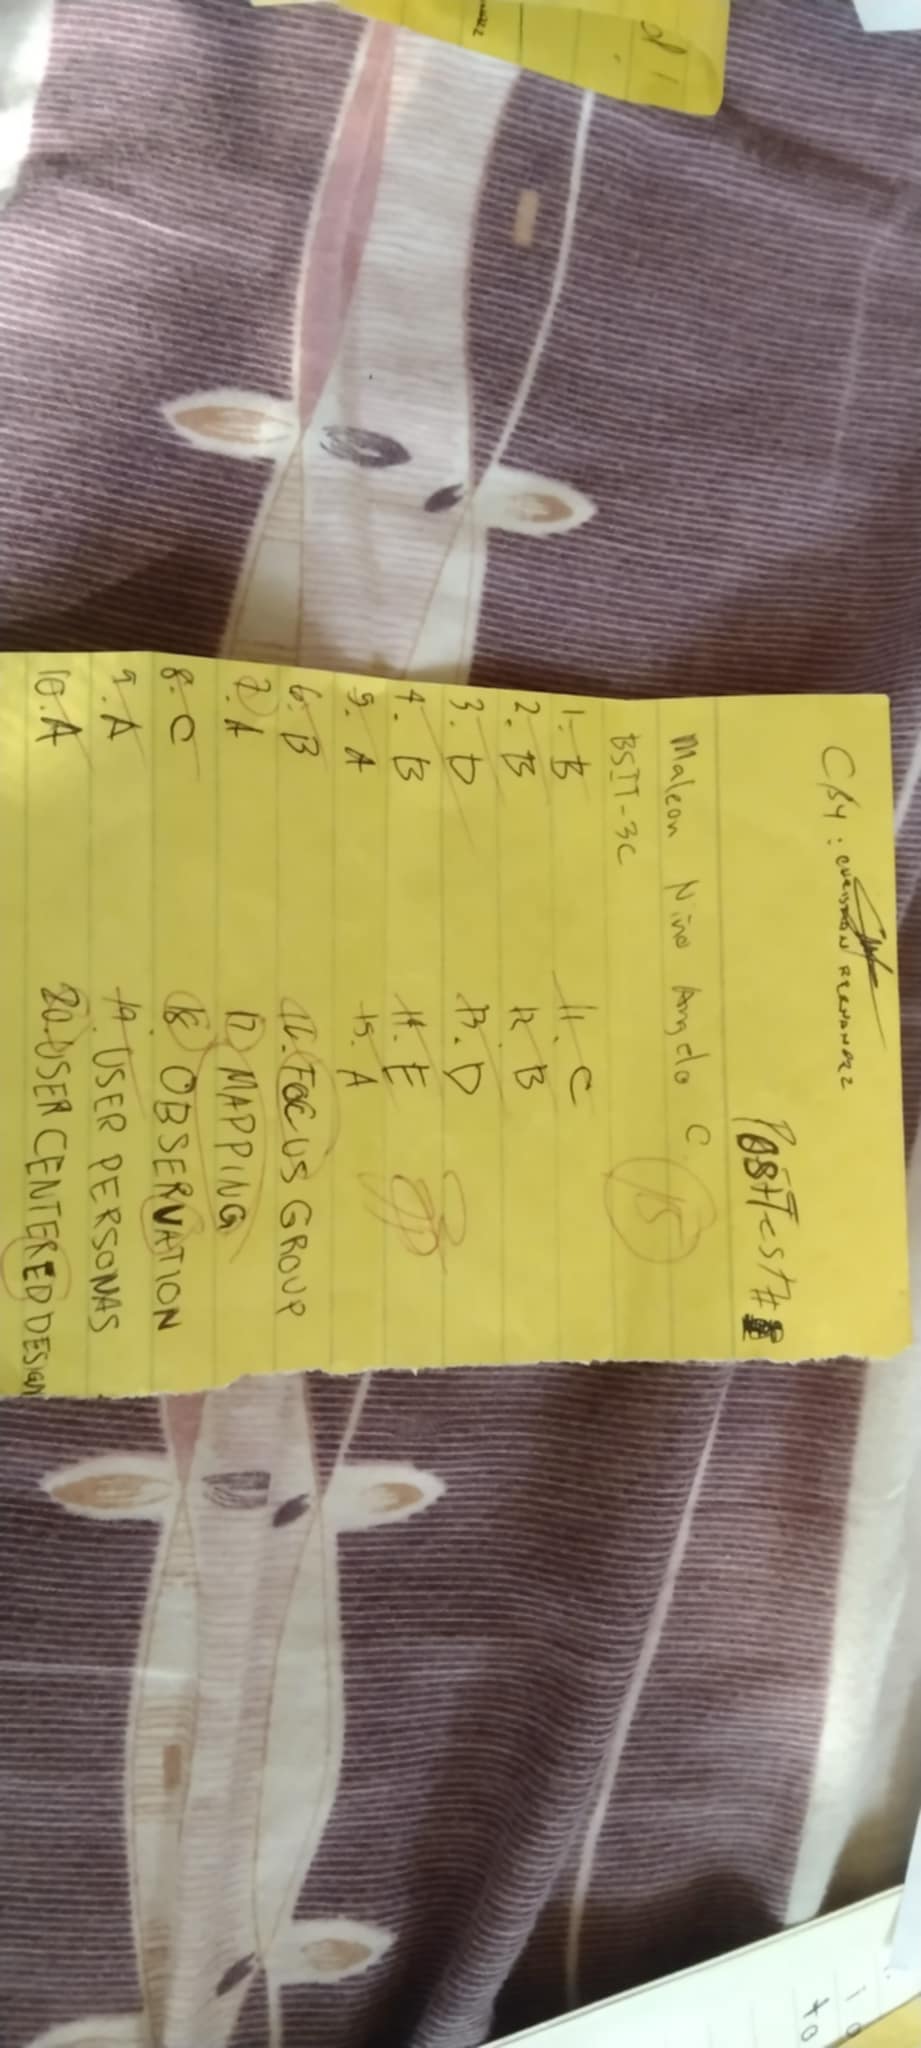 CBy: CHRISTIAN HERNANDEZ
POSTTest #
Maleon Niño Angelo C.
15
BSIT-3C
1. B
2. B
3. D
4. B
5. A
6. B
7. A
8. C
9. A
10. A
11. C
12. B
13. D
14. E
15. A
16. FOCUS GROUP
17. MAPPING
18. OBSERVATION
19. USER PERSONAS
20. USER CENTERED DESIGN
to